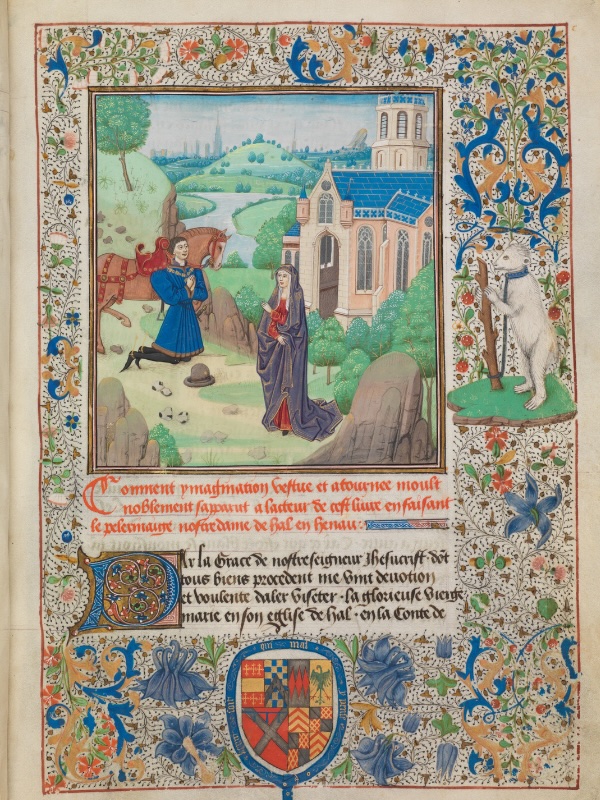 Comment ymagination vestue et atournee moult
noblement sapparut a lacteur de cest liure en faisant
le pelerinaige nostredame de hal en henau :
Par la Grace de nostreseigneur Jhesucrist dõt
tous biens procedent me vint deuotion
et voulente daler viseter · la glorieuse vierge
marie en son eglise de hal · en la Conte de
qui mal y pense